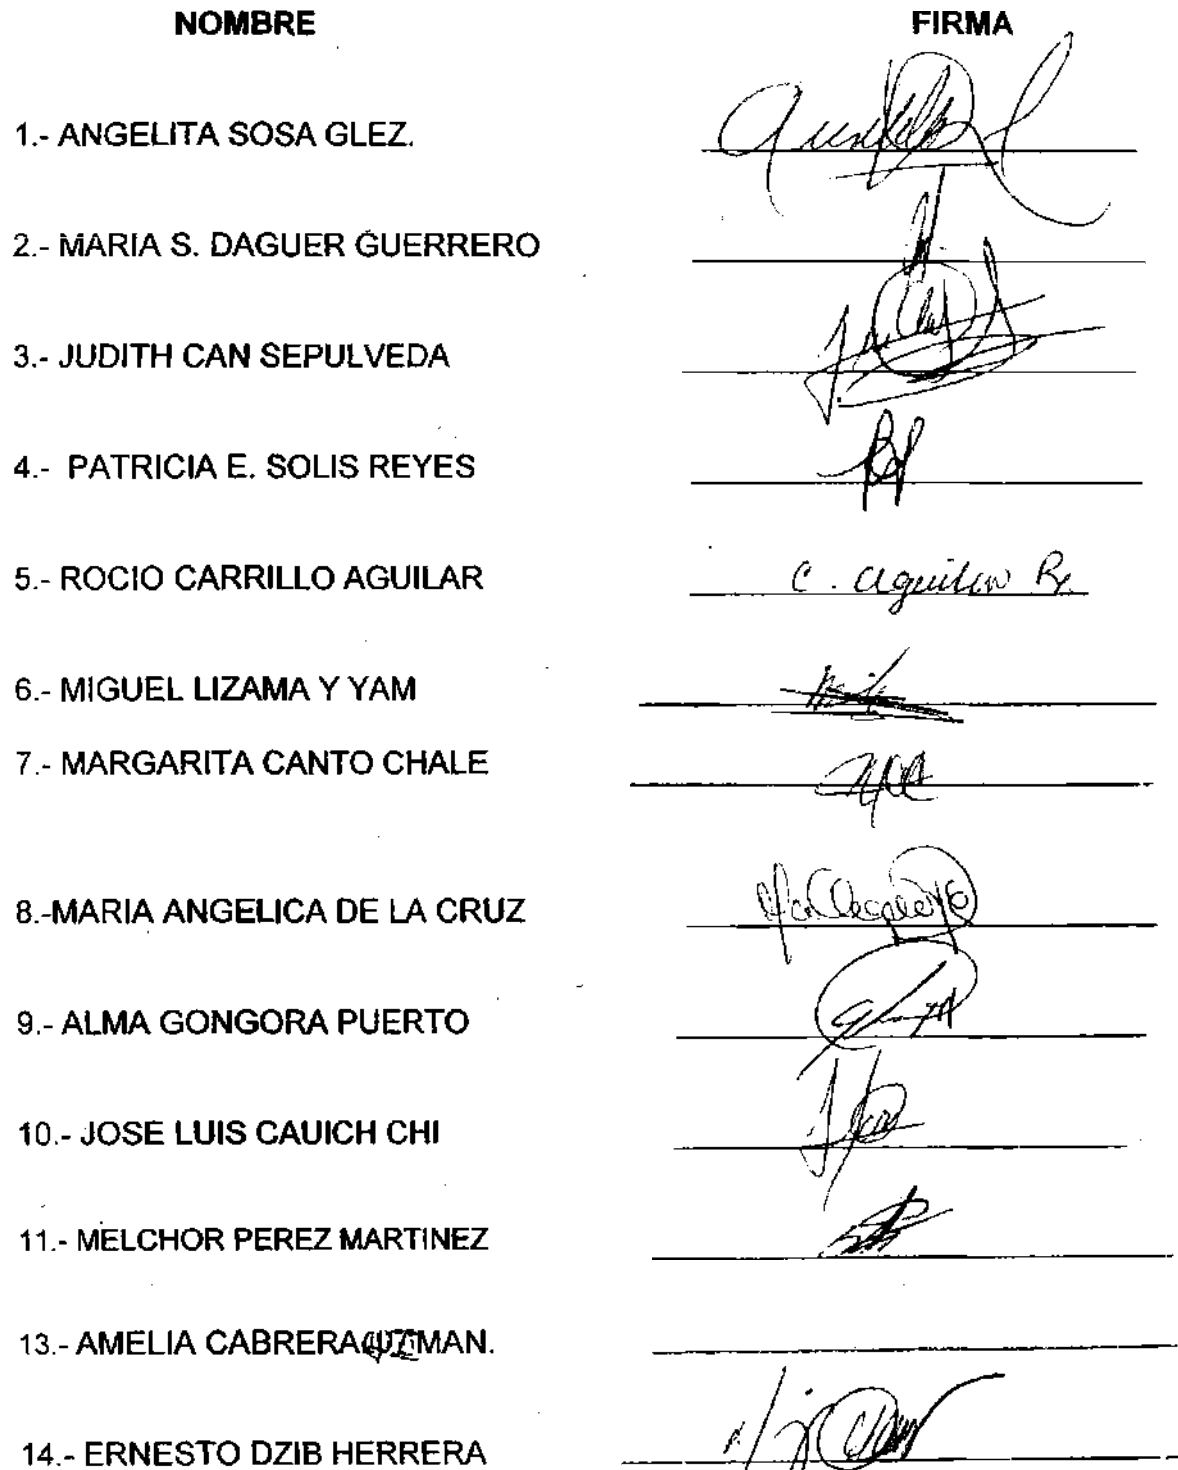 NOMBRE FIRMA
1.- ANGELITA SOSA GLEZ.
2.- MARIA S. DAGUER GUERRERO
3.- JUDITH CAN SEPULVEDA
4.- PATRICIA E. SOLIS REYES
5.- ROCIO CARRILLO AGUILAR C. Aguilar R.
6.- MIGUEL LIZAMA Y YAM
7.- MARGARITA CANTO CHALE
8.-MARIA ANGELICA DE LA CRUZ
9.- ALMA GONGORA PUERTO
10.- JOSE LUIS CAUICH CHI
11.- MELCHOR PEREZ MARTINEZ
13.- AMELIA CABRERA GUZMAN.
14.- ERNESTO DZIB HERRERA